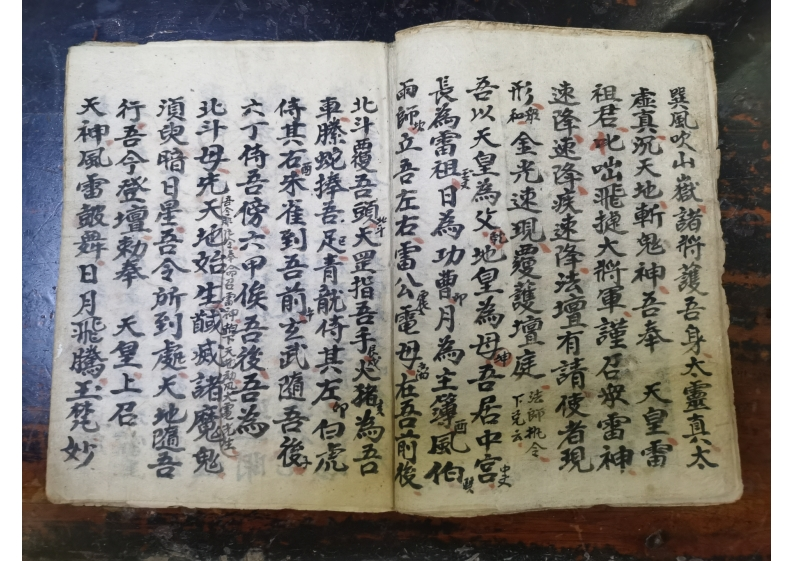 巽風吹山嶽諸將護吾身太靈真太
虛真沉天地斬鬼神吾奉 天皇雷
祖君叱咄飛捷大將軍謹召衆雷神
速降速降疾速降法壇有請使者現
形 金光速現覆護壇庭 法師 令
下 云
吾以天皇為父地皇為母吾居中宮
長為雷祖日為功曹月為主簿風伯
雨師立吾左右雷公電母在吾前後
北斗覆吾頭天罡指吾手火猪為吾
車螣蛇捧吾足青龍侍其左白虎
侍其右朱雀到吾前玄武隨吾後
六丁侍吾傍六甲俟吾後吾為
北斗母先天地始生馘滅諸魔鬼
須臾暗日星吾令所到處天地隨吾
行吾今登壇勅奉 天皇上召
天神風雷鼓舞日月飛騰玉梵妙